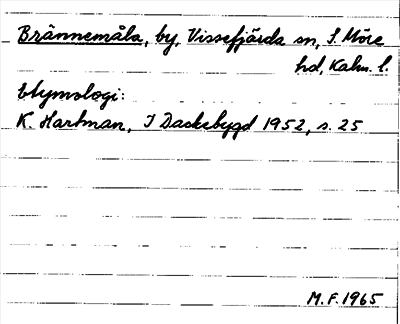 Brännemåla, by, Vissefjärda sn, S. Möre
hd, Kalm. l.
Etymologi:
K. Hartman, I Dackebygd 1952, s. 25
M.F. 1965